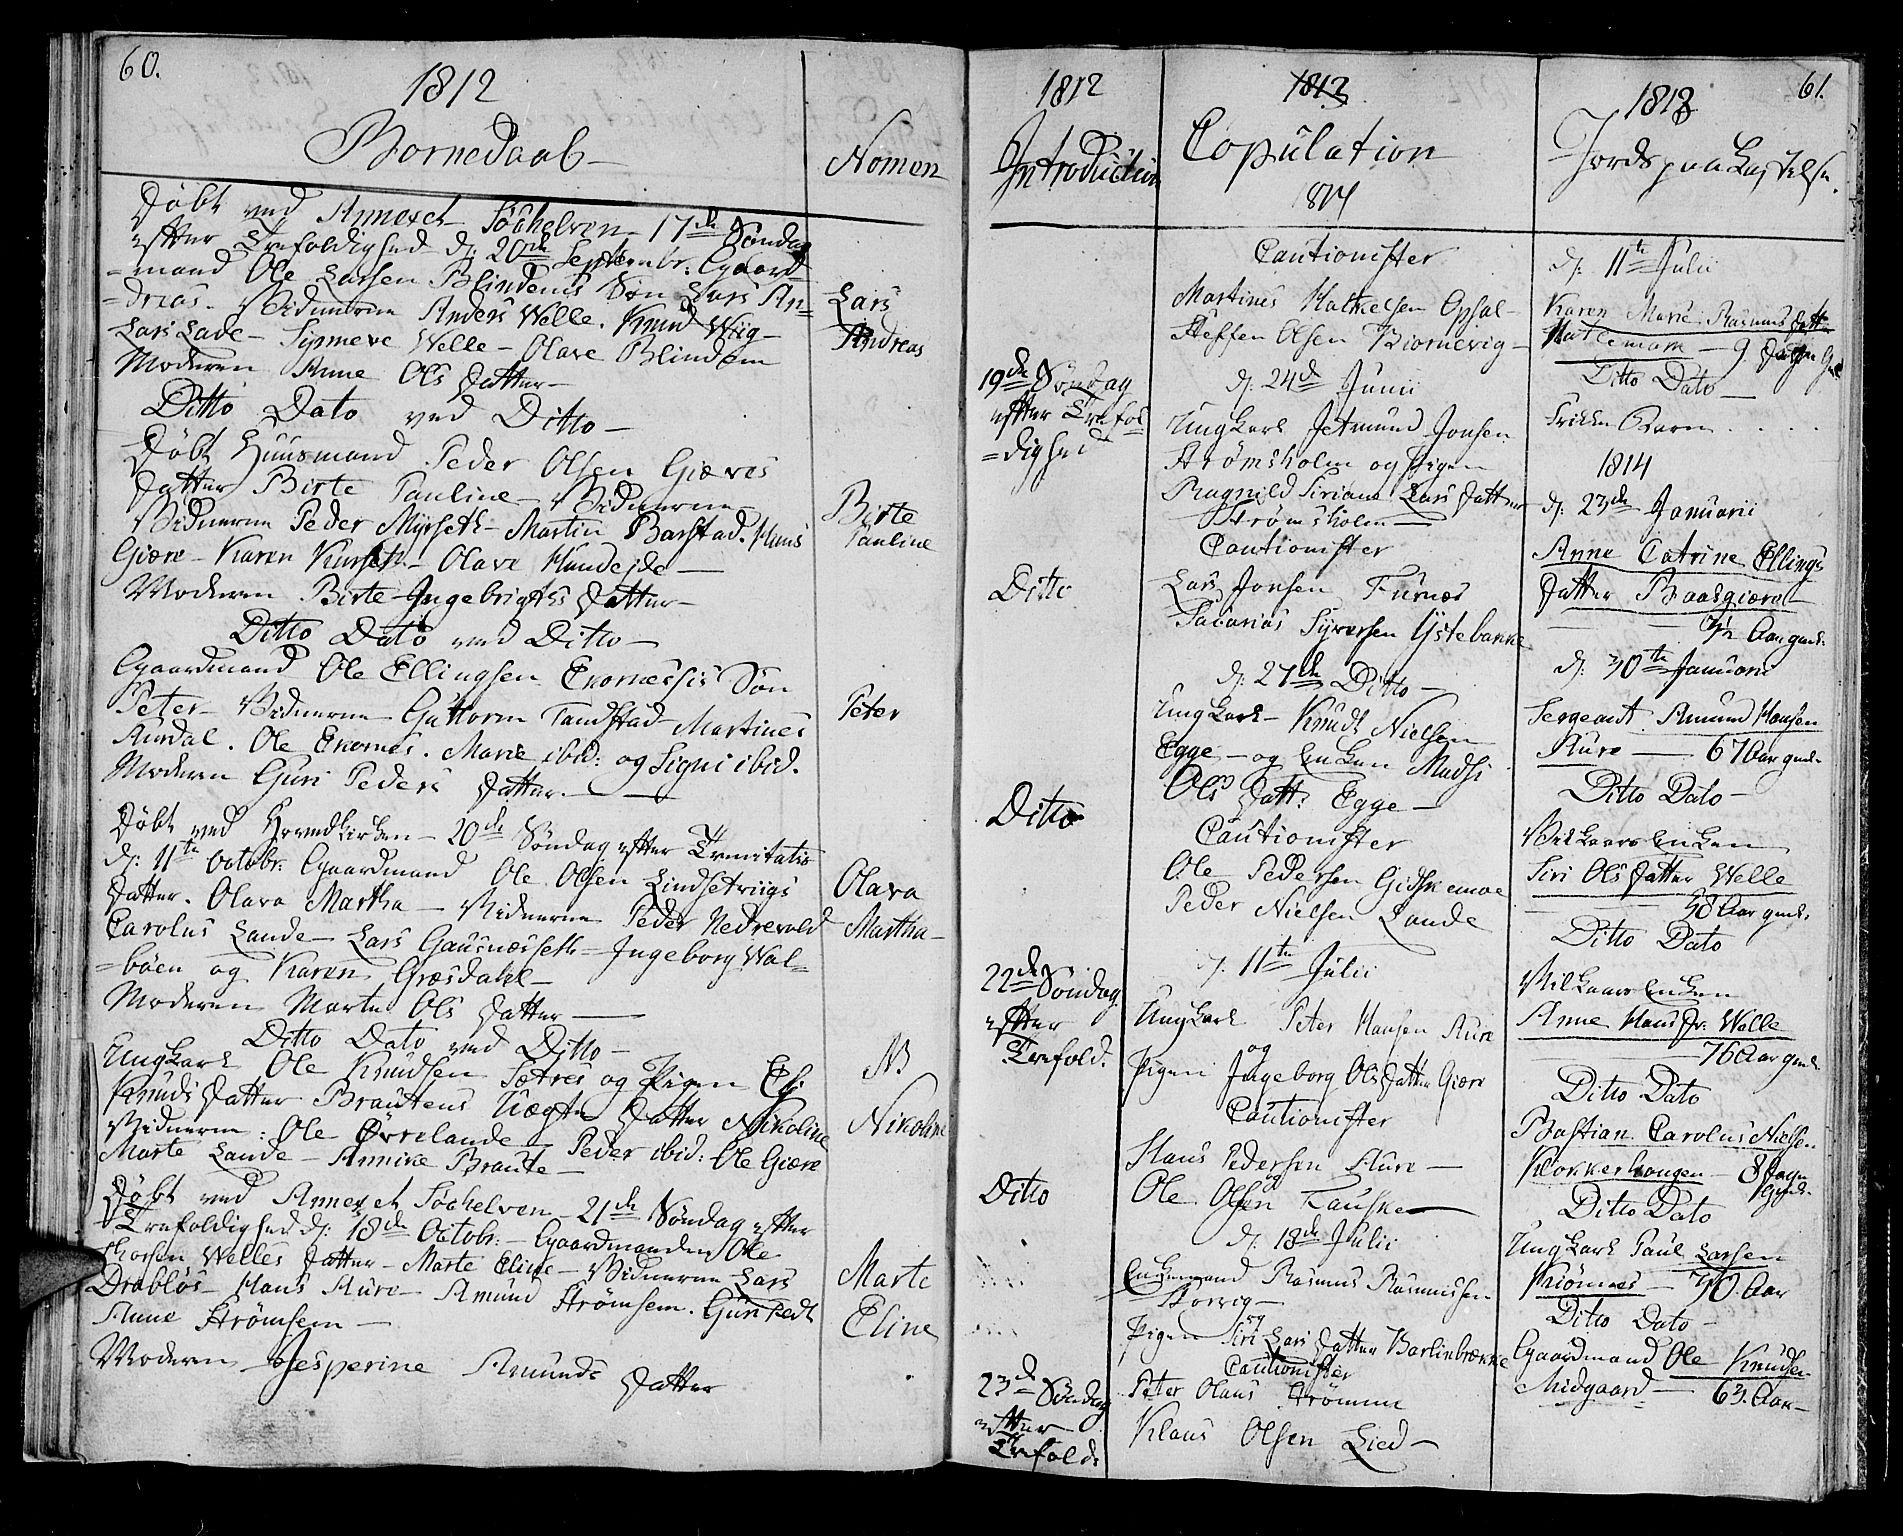 60.
1812
Bornedaab
Nomen
Døbt ved Annexet Søchelven 17de Søndag
efter Trefoldighed d: 20de Septembr: Gaard-
=mand Ole Larsen Blindems Søn Lars An=
=dreas. Vidnerne Anders Welle. Knud Wiig-
Lars Lade - Synneve Welle - Olave Blindem
Moderen Anne Ols Datter-
Lars
Andreas
Ditto Dato ved Ditto-
Døbt Huusmand Peder Olsen Giæres
Datter Birte Pauline- Vidnerne
Vidnerne Peder Myrseth- Martin Barstad. Hans
Giære- Karen Kurseth- Olave Hundeide-
Moderen Birte Ingebrigts Datter-
Birte
Pauline
Ditto Dato ved Ditto-
Gaardmand Ole Ellingsen Ekornessis Søn
Peter- Vidnerne- Guttorm Tandstad Martines
Aursdal. Ole Ekornes. Marie ibid: og Signi ibid.
Moderen Guri Peders Datter.
Peter
Døbt ved Hovedkirken- 20de Søndag efter Trinitatis
d: 11te Octobr: Gaardmand Ole Olsen Lindsetviigs
Datter. Olava Martha- Vidnerne Peder Nedrevold
Carolus Lande- Lars Gausnesseth- Ingeborg Wal=
=bøen og Karen Græsdahl-
Moderen Marte Ols Datter-
Olava
Martha-
Ditto Dato ved Ditto-
Ungkarl Ole Knudsen Sætres og Pigen
Knuds Datter Brautens Uægte Datter Nikoline
Vidnerne: Ole Øvrelande Peder ibid: Ole Giære
Marte Lande- Annike Braute-
NB
Nikoline
Døbt ved Annexet Søchelven- 21de Søndag efter
Trefoldighed d: 18de Octobr:- Gaardmanden Ole
Welles Datter- Marte Eline- Vidnerne Lars
Drabløs- Hans Aure- Amund Strømsem. Guri
Anne Strømsem-
Moderen Jesperine Amunds Datter
Marte
Eline
1812
Introduction
19de Søndag
efter Trefol
=dighed
Ditto
Ditto
22de Søndag
efter
Trefold.
Ditto
23de Søndag
efter
Trefold:
1813
Copulation
1814
Cautionister
Martines Opsal-
Steffen Olsen Biornevig-
d: 24de Junii
Ungkarl Jetmund Jonsen
Strømsholm og Pigen
Ragnild Siriane Lars Datter
Strømsholm-
Cautionister
Lars Jonsen Furnes
Syversen Ystebanke
d: 27de Ditto-
Ungkarl- Knudt Nielsen
Egge- og Enken Madsi
Ols Datt: Egge-
Cautionister
Ole Pedersen Gidskemoe
Peder Nielsen Lande
d: 11te Julii
Ungkarl Peter Hansen Aure
og
Pigen Ingeborg Ols Datter Giære
Cautionister
Hans Pedersen Aure-
og
Ole Olsen Tauske
d: 18de Julii
Enkemand Rasmus Rasmussen
Storvig-
og
Pigen Siri Lars Datter Barlinbrække
Cautionister
Peter Olaus Strømme
Klaus Olsen Lied-
61.
1813
Jords paa Kastelse.
d: 11te Julii
Karen Marie Rasmus Datter
Hatlemark- 9 Dager Gl
Ditto Dato-
Barn . . . .
1814
d: 23de Januarii
Anne Catrine Ellings
Datter Baasgiære
1/2 Aar gml:
d: 30te Januarii
Sergeant Amund Hansen
Aure- 67 Aar gml-
Ditto Dato-
Vilkaars Enken
Siri Ols Datter Welle
58 Aar gml:
Ditto Dato
Vilkaars Enken
Anne Hans Dr: Welle
76 Aar gml:
Ditto Dato
Bastian Carolus Nielsen
Klokkerhougen- 8 Dage
Gml:
Ditto Dato
Ungkarl Paul Larsen
30. Aar
Ditto Dato-
Gaardmand Ole Knudsen
Midgaard- 63. Aar-